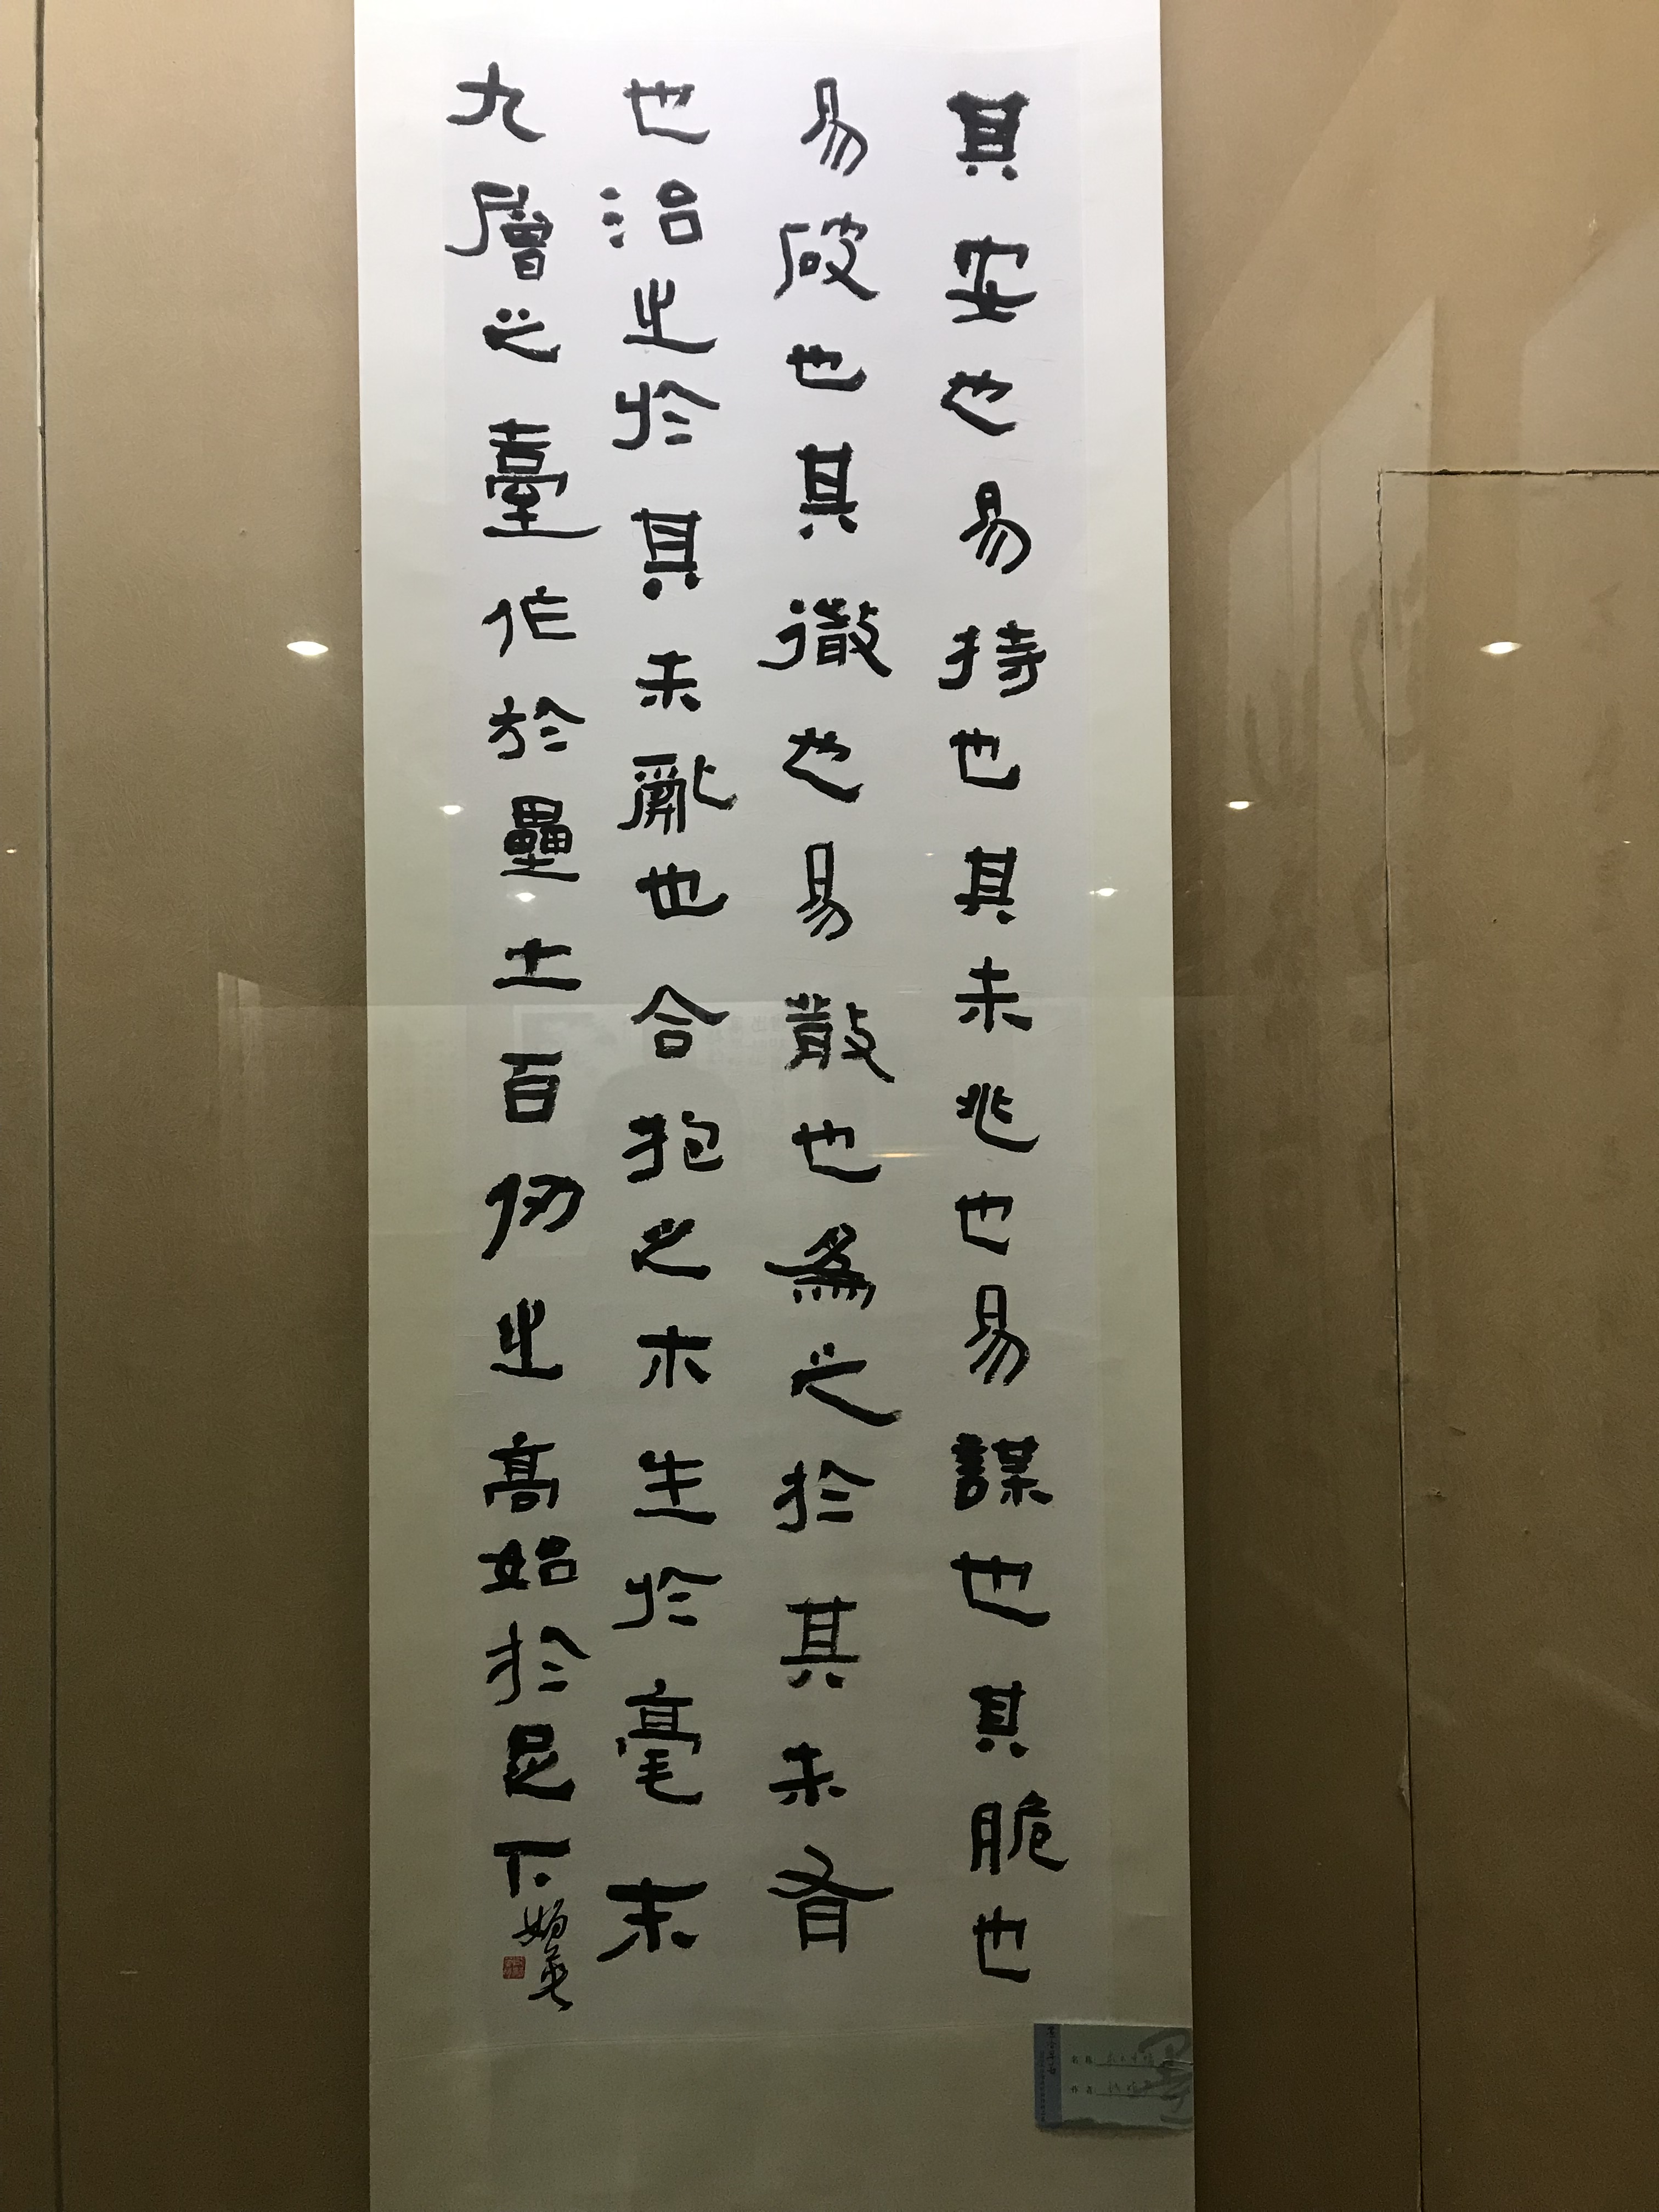 其安也易持也其未兆也易謀也其脆也
易破也其徵也易散也為之於其未有
也治之於其未亂也合抱之木生於毫末
九層之臺作於壘土百仞之高始於足下